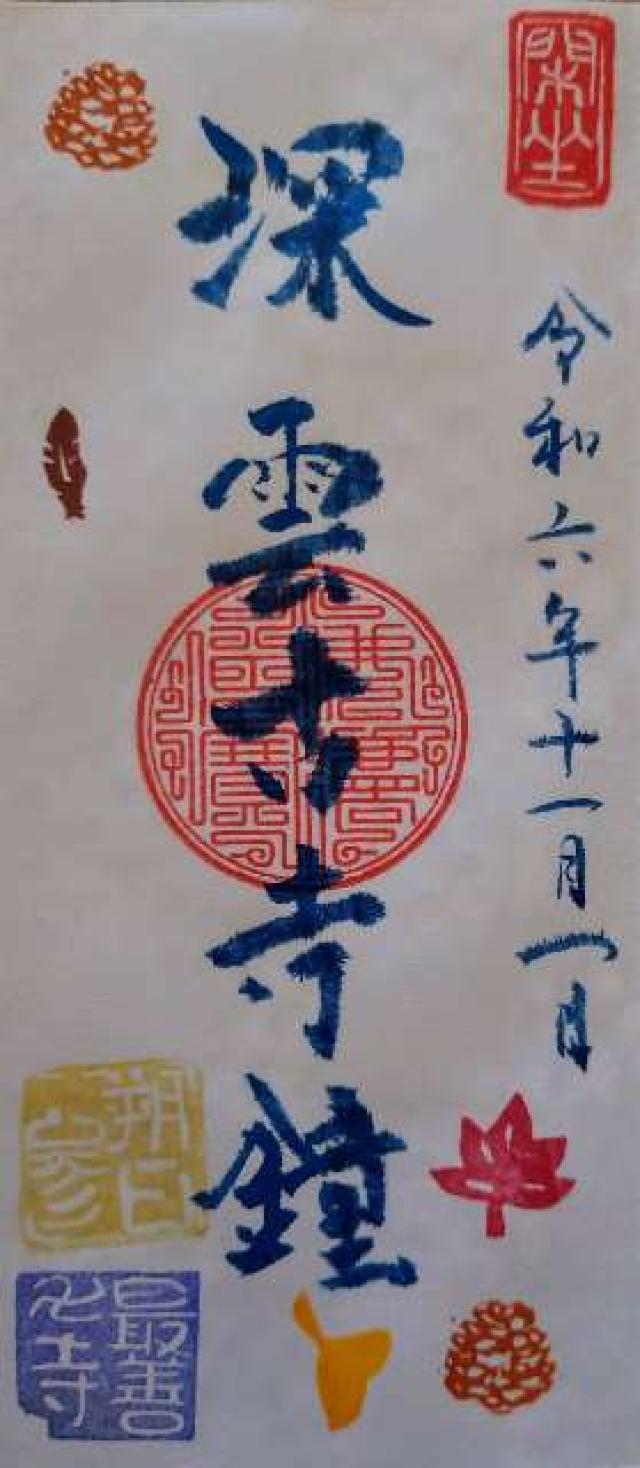 閑坐
令和六年十一月一日
深雲古寺鐘
朔日
参
最善
寺